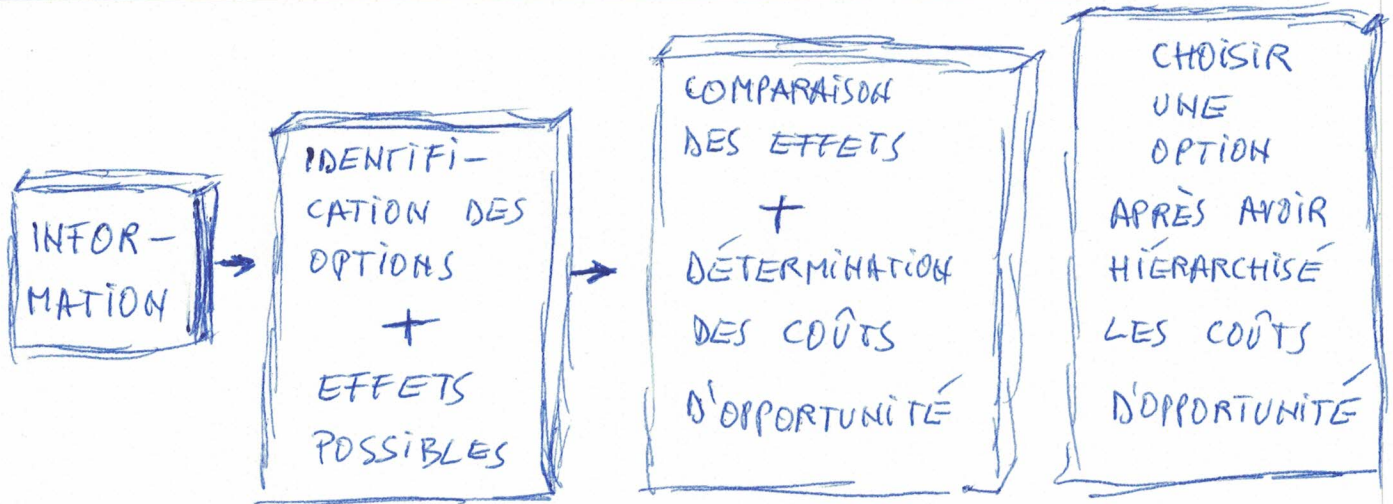 INFOR-
MATION
IDENTIFI-
CATION DES
OPTIONS
+
EFFETS
POSSIBLES
COMPARAISON
DES EFFETS
+
DÉTERMINATION
DES COÛTS
D'OPPORTUNITÉ
CHOISIR
UNE
OPTION
APRÈS AVOIR
HIÉRARCHISÉ
LES COÛTS
D'OPPORTUNITÉ